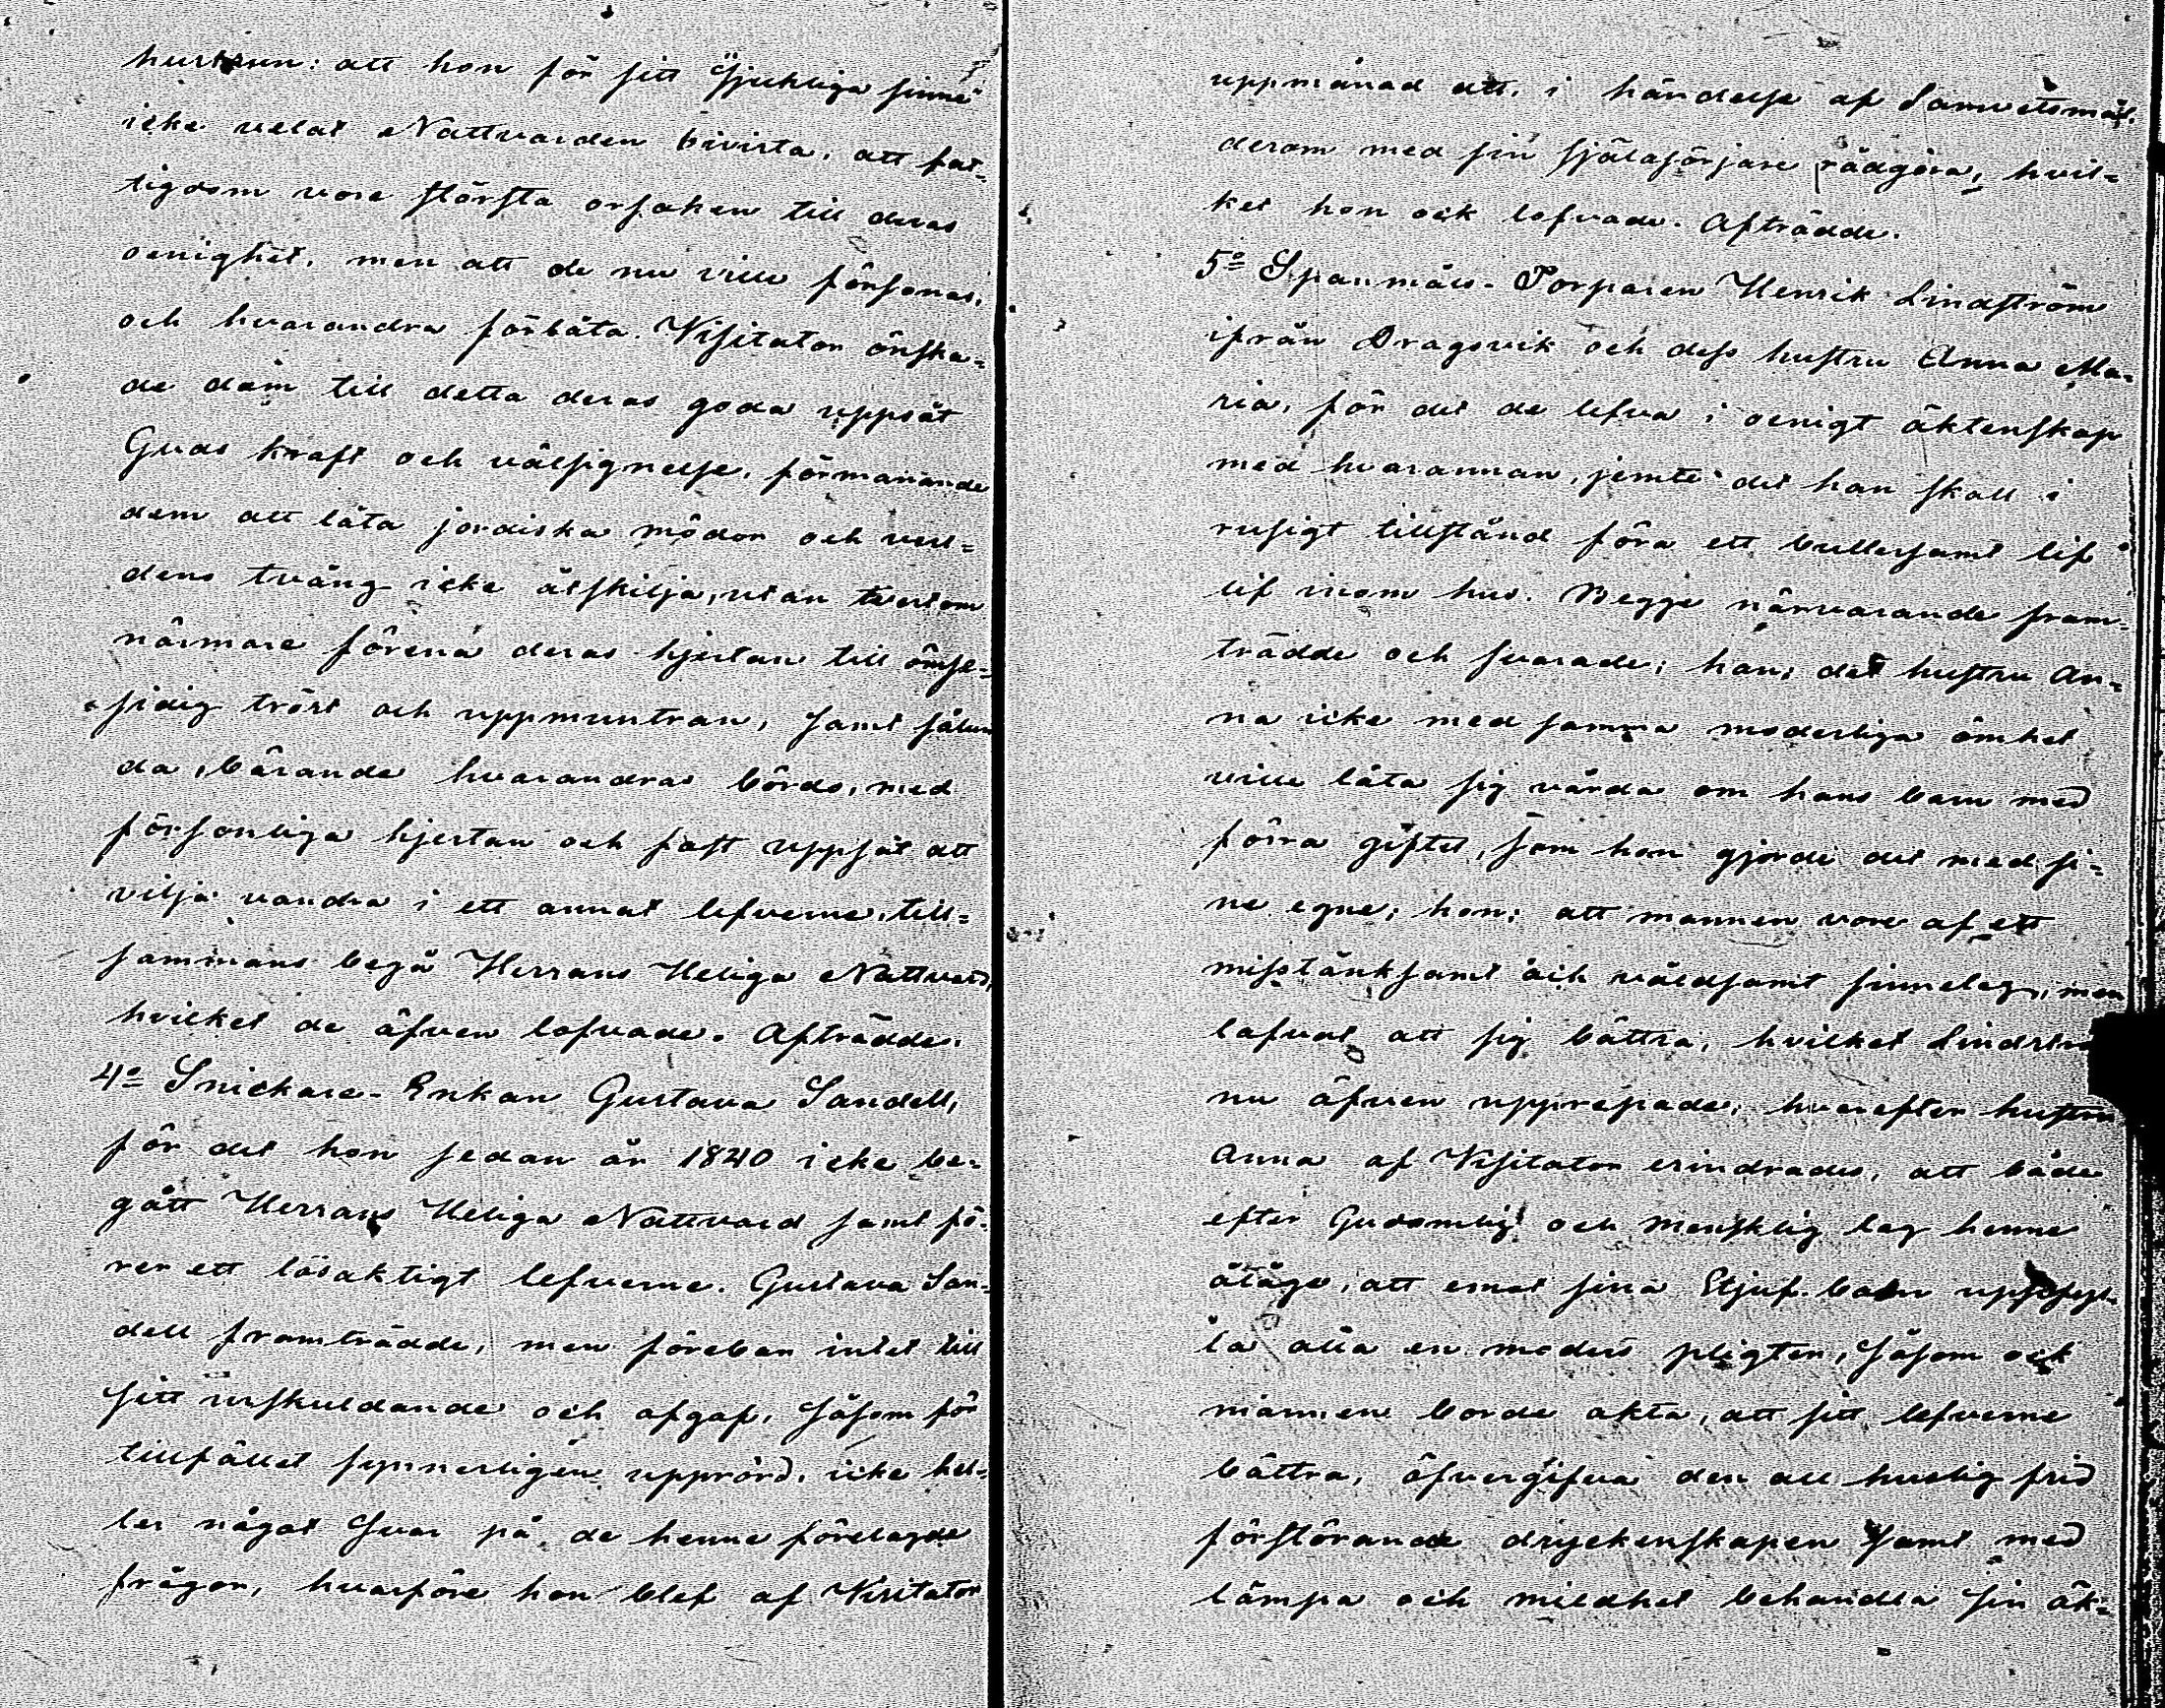 hustrun: att hon för sitt "sjukliga sinne"
icke velat Nattvarden bivista, att fat-
tigdom vore största orsaken till deras
oenighet, men att de nu ville försonas,
och hvarandra förlåta. Visitator önska-
de dem till detta deras goda uppsåt
Guds kraft och välsignelse, förmanande
dem att låta jordiska mödor och verl-
dens tvång icke åtskilja, utan tvertom
närmare förena deras hjertan till ömse-
sidig tröst och uppmuntran, samt sålun
da, bärande hvarandras börda, med
försonliga hjertan och fast uppsåt att
vilja vandra i ett annat lefverne, till-
sammans begå Herrans Heliga Nattvard,
hvilket de äfven lofvade. Afträdde.
4º Snickare-Enkan Gustava Sandell,
för det hon sedan år 1840 icke be-
gått Herrans Heliga Nattvard samt fö-
rer ett lösaktigt lefverne. Gustava San-
dell framträdde, men förebar intet till
sitt urskuldande och afgaf, såsom för
tillfället synnerligen upprörd, icke hel-
ler något svar på de henne förelagde
frågor, hvarföre hon blef af Visitator
uppmanad att, i händelse af Samvetsmål,
derom med sin själasörjare rådgöra, hvil-
ket hon ock lofvade. Afträdde.
5º Spanmåls-Torparen Henrik Lindström
ifrån Dragsvik och dess hustru Anna Ma-
ria, för det de lefva i oenigt äktenskap
med hvarannan, jemte det han skall i
rusigt tillstånd föra ett bullersamt lif
lif inom hus. Begge närvarande fram-
trädde och svarade; han: det hustru An-
na icke med samma moderliga ömhet
ville låta sig vårda om hans barn med
förra giftet, som hon gjorde det med si-
ne egne; hon: att mannen vore af ett
misstänksamt och våldsamt sinnelag, men
lofvat att sig bättra, hvilket
nu äfven upprepade, hvarefter hustru
Anna af Visitator erindrades, att både
efter Gudomlig och mensklig lag henne
åtåge, att emot sina Stjuf-barn uppfyl-
la alla en moders pligter, såsom ock
mannen borde akta, att sitt lefverne
bättra, öfvergifva den all huslig frid
förstörande dryckenskapen samt med
lämpa och mildhet behandla sin äk-